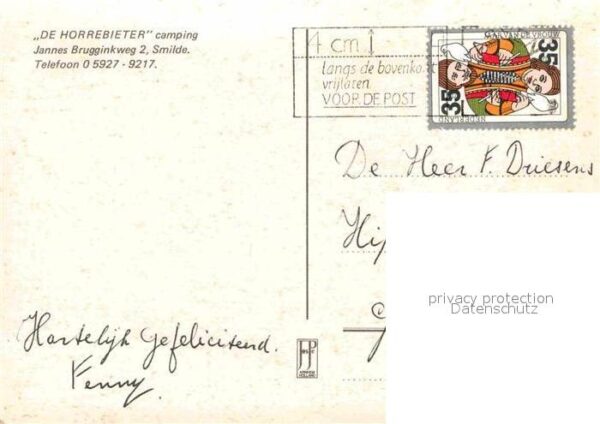 „DE HORREBIETER” camping
Jannes Brugginkweg 2, Smilde.
Telefoon 0 5927 - 9217.
4 cm
langs de bovenka
vrijlaten
VOOR DE POST
JAAR VAN DE VROUW
35
35
NEDERLAND
De Heer F. Driesens
privacy protection
Datenschutz
Hartelijk gefeliciteerd.
Fenny.